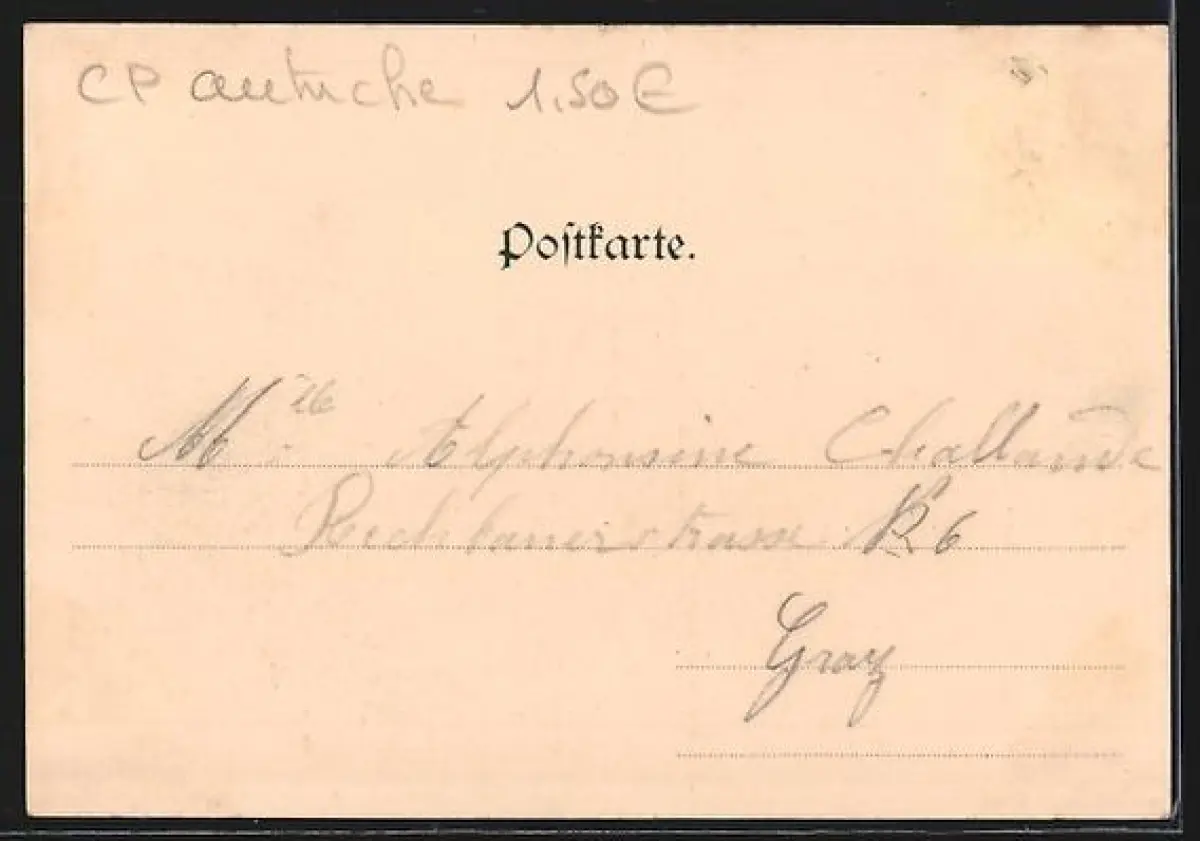 CP autriche 1,50€
Postkarte.
Mlle Alphonsine Challande
Rechbauerstrasse 6
Graz